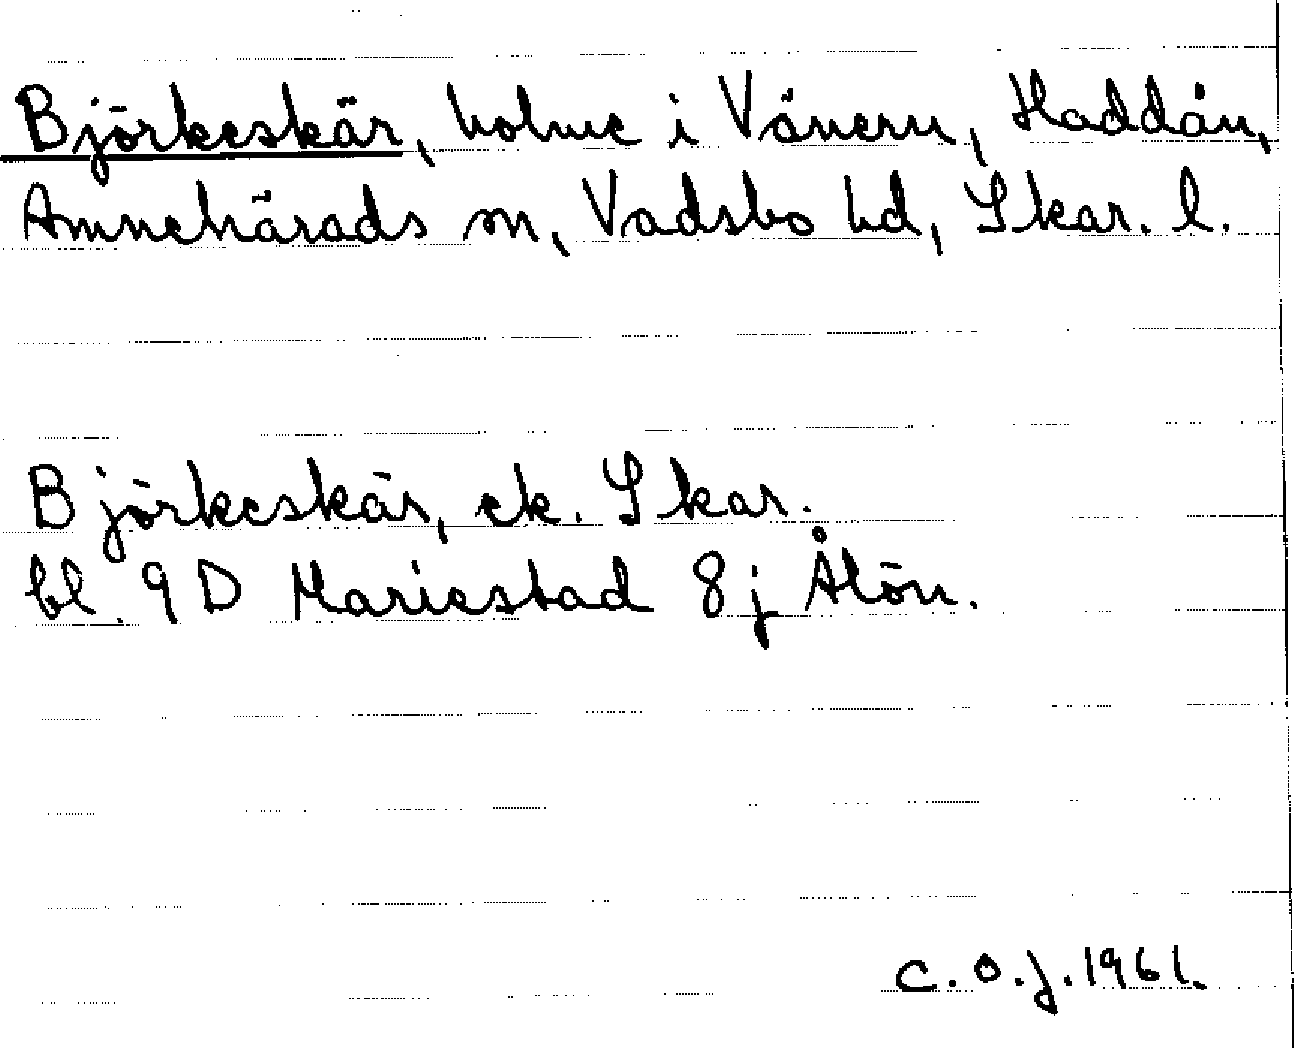 Björkeskär, holme i Vänern, Haddån,
Amnehärads sn, Vadsbo hd, Skar. l.
Björkeskär, ek. Skar.
bl. 9D Mariestad 8j Åtön.
C.O.J. 1961.